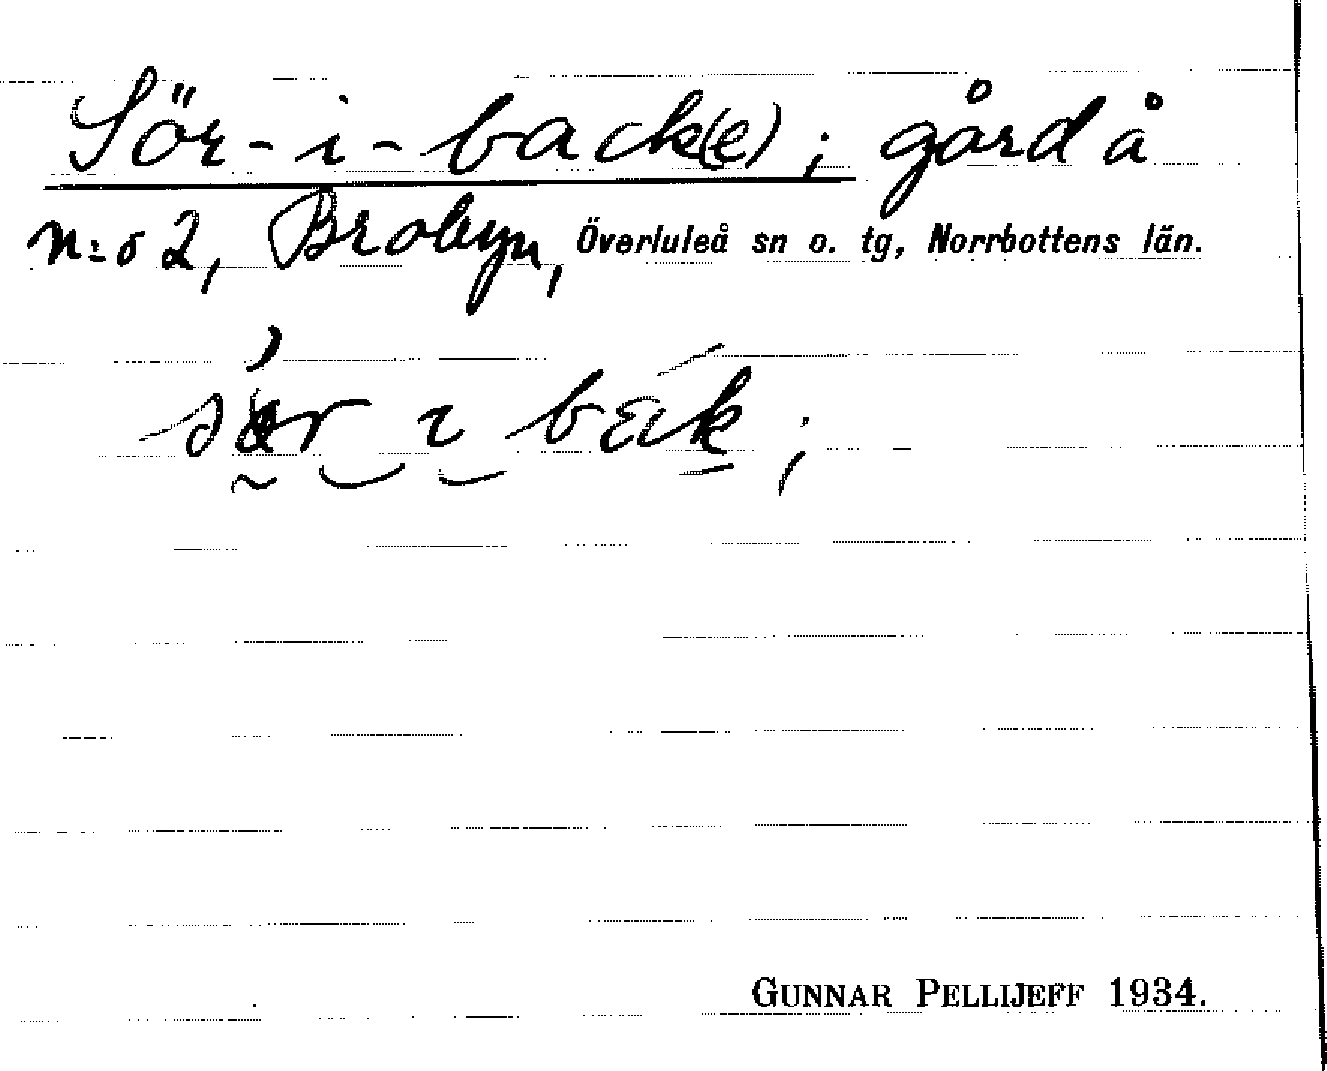 Sör-i-back(e); gård å
n:o 2, Brobyn, Överluleå sn o. tg, Norrbottens län.
i
GUNNAR PELLIJEFF 1934.